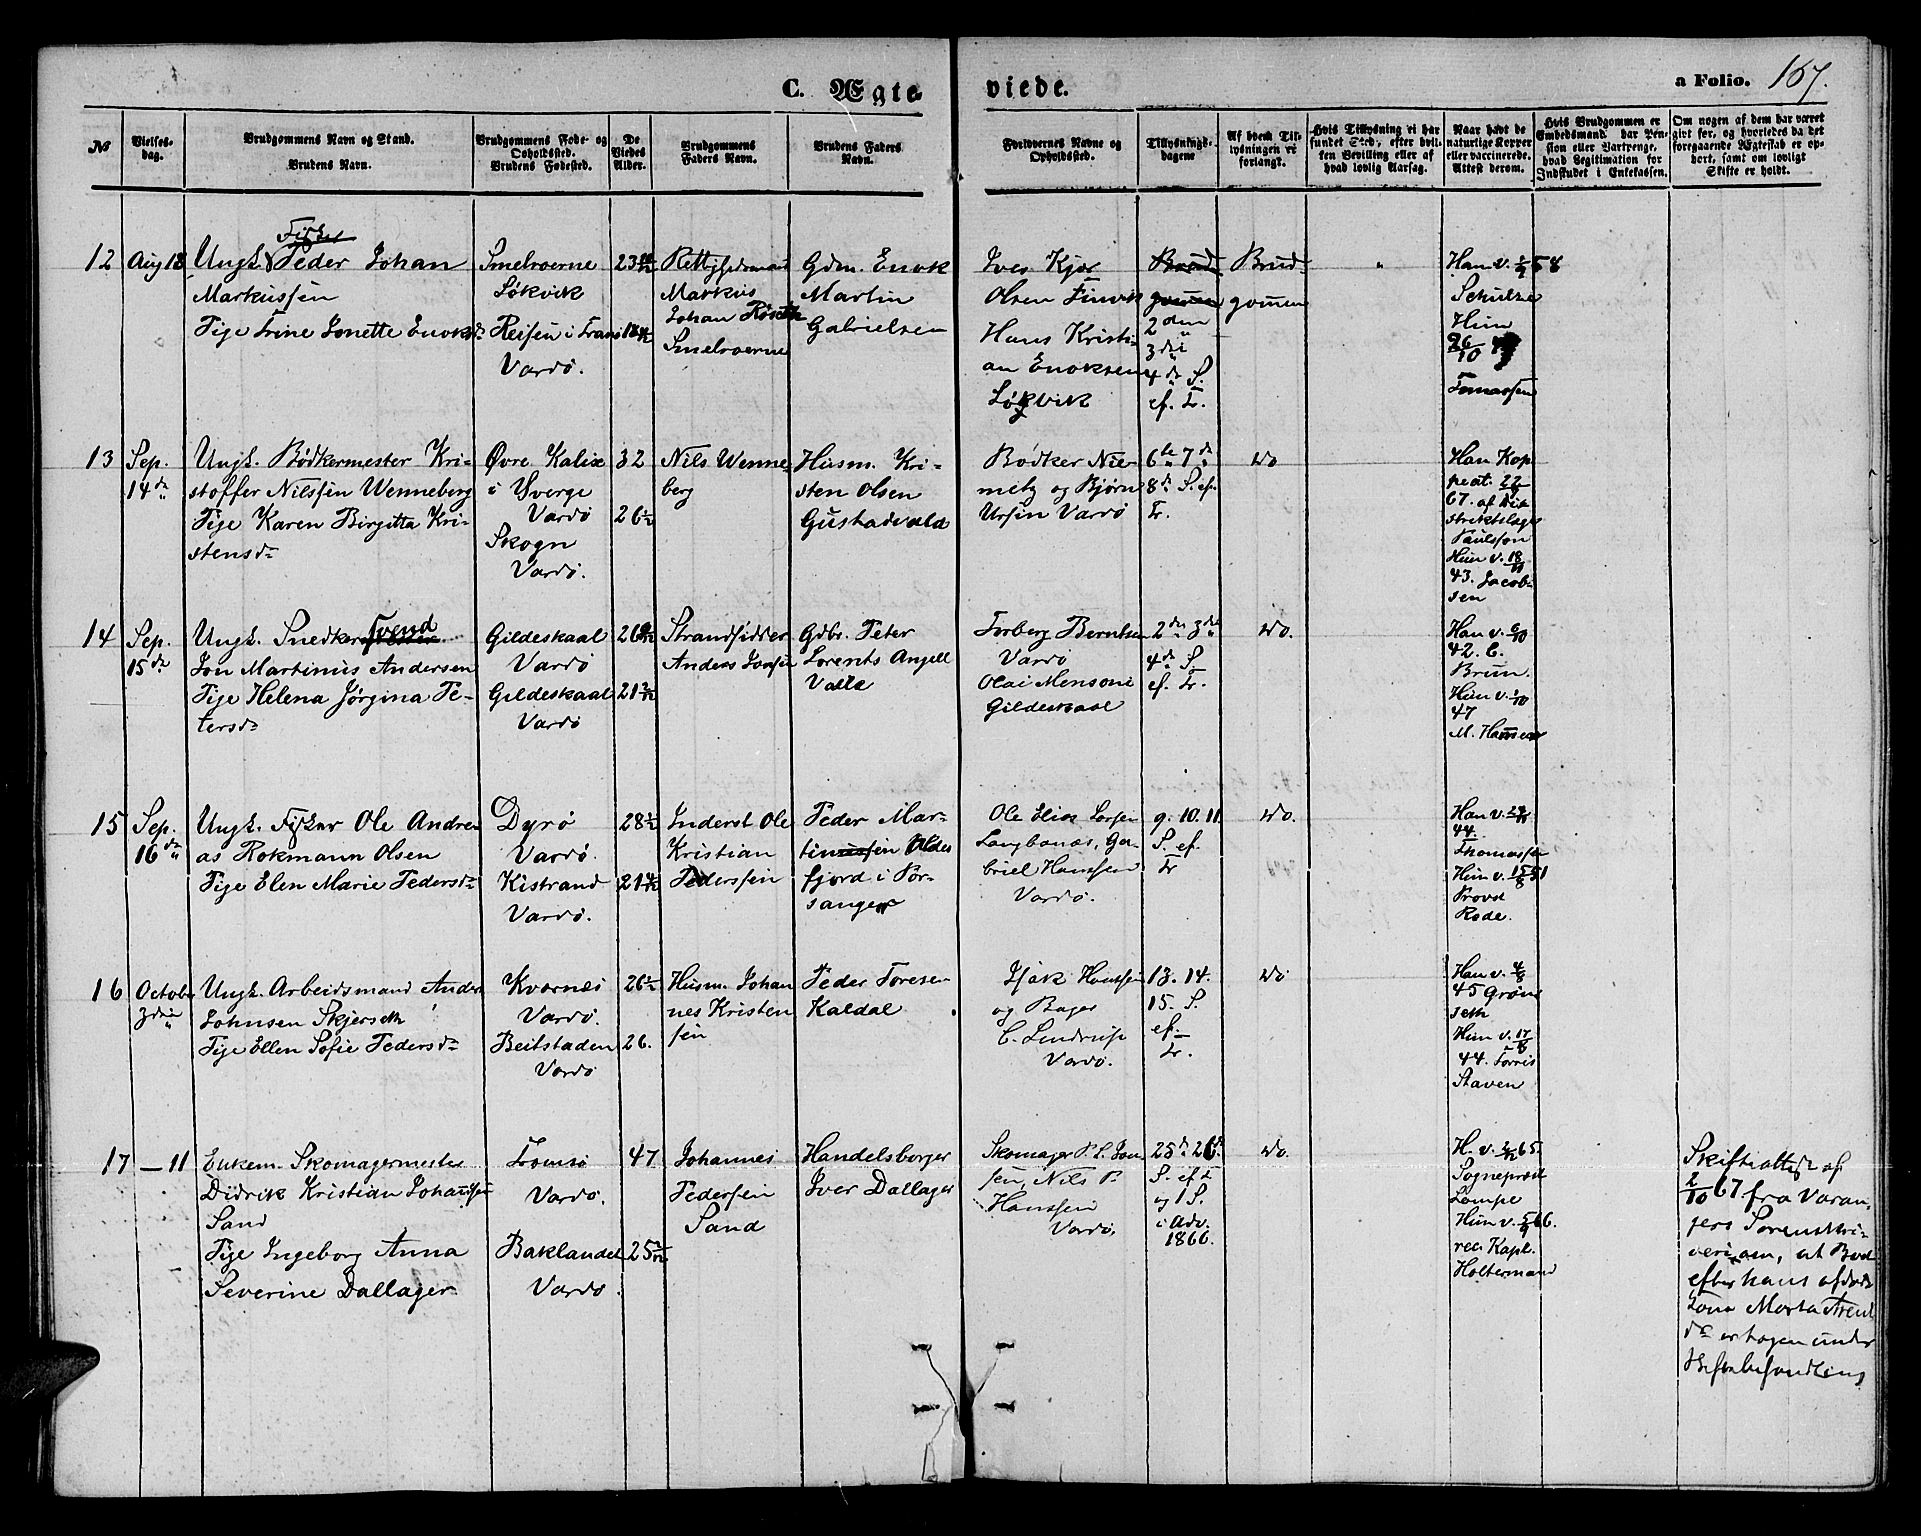 C. Ægteviede.
a Folio. 167.
No
Vielses-
dag.
Brudgommens Navn og Stand.
Brudens Navn.
Brudgommens Føde- og
Opholdssted.
Brudens Fødested.
De
Viedes
Alder.
Brudgommens
Faders Navn.
Brudens Faders
Navn.
Forlovernes Navne og
Opholdssted.
Tillysnings-
dagene
Af hvem Til-
lysningen er
forlangt.
Hvis Tillysning ei har
fundet Sted, efter hvil-
ken Bevilling eller af
hvad lovlig Aarsag.
Naar havt de
naturlige Kopper
eller vaccinerede.
Attest derom.
Hvis Brudgommen er
Embedsmand har Pen-
sion eller Vartpenge,
hvad Legitimation for
Indskudet i Enkekassen.
Om nogen af dem har været
gift før, og hvorledes da det
foregaaende Ægteskab er op-
hørt, samt om lovligt
Skifte er holdt.
12
Aug 18
Fisker
Ungk. Peder Johan
Markussen
Pige Trine Jonette Enoksdr
Smelroerne
Løkvik
Reisen i
Vardø.
Markus
Johan
Smelroerne
Gdm. Enok
Martin
Gabrielsen
Ives Kjer
Olsen Finvik
Hans Kristi-
an Enoksen
Løkvik
Brud
gommen
2den
3die
4de S.
ef. Tr.
Brud-
gommen
"
Han v. 58
Schulze
Hun
26/10
Tomassen
13
Sep.
14de
Ungk. Bødkermester Kri-
stoffer Nilssen Wenneberg
Pige Karen Birgitta Kri-
stensdr
Øvre Kalix
i Sverge
Vardø
Skogn
Vardø.
32
26½
Nils Wenne-
berg
Husm. Kri-
sten Olsen
Gustadvald
Bødker Nie-
metz og Bjørn
Ursin Vardø
6te 7de
8de S. ef.
Tr.
Do
Han Kop
peat. 22
67. af Di-
striktslæge
Paulsson
Hun v. 18/11
43. Jacob-
sen
14
Sep.
15de
Ungk. Snedkersvend
Jon Martinus Andersen
Pige Helena Jørgina Pe-
tersdr
Gildeskaal
Vardø
Gildeskaal
Vardø
Strandsidder
Anders Jonsen
Gdbr. Peter
Lorents Angell
Valle
Torberg Berntsen
Vardø
Olai Monsoni
Gildeskaal
2den 3die
4de S.
ef. Tr.
Do.
Han v. 6/10
42. C.
Brun.
Hun v. 1/10
47
M. Hansen
15
Sep.
16de
Ungk. Fisker Ole Andre-
as Rokmann Olsen
Pige Elen Marie Pedersdr
Dyrø
Vardø.
Kistrand
Vardø.
28½
Inderst Ole
Kristian
Pederssen
Peder Mar-
tinussen Olde
fjord i Por-
sanger
Ole Elias Larsen
Langbunæs, Ga-
briel Hanssen
Vardø.
9. 10. 11
S. ef.
Tr
Do.
Han v.
44.
Thomassen
Hun v. 15/8 51
Provst
Rode.
16
Octobr
3die
Ungk. Arbeidsmand Anders
Johnsen Skjerseth
Pige Ellen Sofie Pedersdr
Kvernes
Vardø.
Beitstaden
Vardø
26½
26.
Husm. Johan
nes Kristen
sen
Peder Toresen
Kaldal
Isak Hanssen
og Bager
C. Lindrup
Vardø.
13. 14.
15. S.
ef.
Tr.
Do
Han v. 4/8
45 Grøn-
seth
Hun v. 17/8
44. Torris
Staven
17
— 11
Enkem. Skomagermester
Didrik Kristian Johanssen
Sand
Pige Ingeborg Anna
Severine Dallager
Tromsø
Vardø.
Baklandet
Vardø.
47
Johannes
Pedersen
Sand
Handelsborger
Iver Dallager
Skomager P. L. Jon
sen, Nils P.
Hanssen
Vardø.
25de 26de
S. ef T
og 1 S.
i Adv.
1866.
Do.
H. v. 65.
Sogneprest
Lampe
Hun v. 66.
res. Kapl.
Holtermand
Skifteattest af
2/10 67 fra Varan-
gers Sorenskri-
veriaen, at Bod
efter hans afdøde
Kone Marta Arent
dr er tagen under
Skiftebehandling